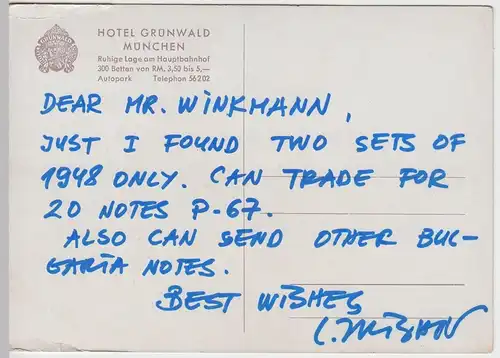 HOTEL GRÜNWALD
MÜNCHEN
Ruhige Lage am Hauptbahnhof
300 Betten von RM. 3,50 bis 5,—
Autopark Telephon 56202
DEAR MR. WINKMANN,
JUST I FOUND TWO SETS OF
1948 ONLY. CAN TRADE FOR
20 NOTES P-67.
ALSO CAN SEND OTHER BUL-
GARIA NOTES.
BEST WISHES